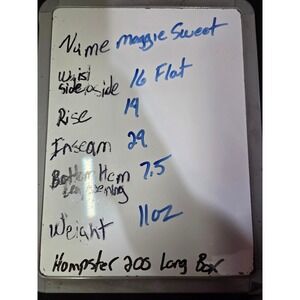 Name Maggie Sweet
Waist side to side 16 Flat
Rise 14
Inseam 29
Bottom Hem 7.5
Leg opening
Weight 11oz
Hompster 200 Long Box